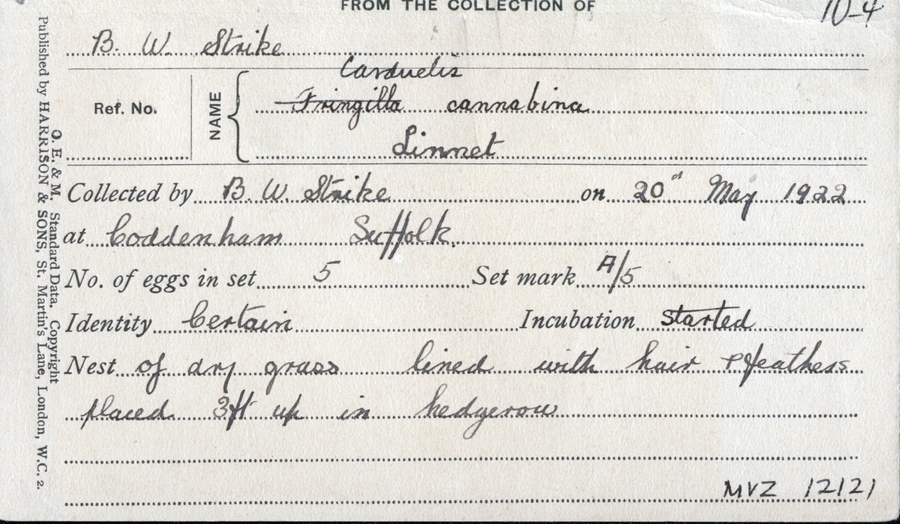 FROM THE COLLECTION OF
10-4
B. W. Strike
Carduelis
Ref. No.
NAME
Fringilla cannabina
Linnet
Collected by B. W. Strike on 20th May 1922
at Coddenham Suffolk.
No. of eggs in set 5 Set mark A/5
Identity Certain Incubation started
Nest of dry grass lined with hair & feathers
placed 3ft up in hedgerow
MVZ 12121
O. E. & M. Standard Data. Copyright
Published by HARRISON & SONS, St. Martin's Lane, London, W.C. 2.